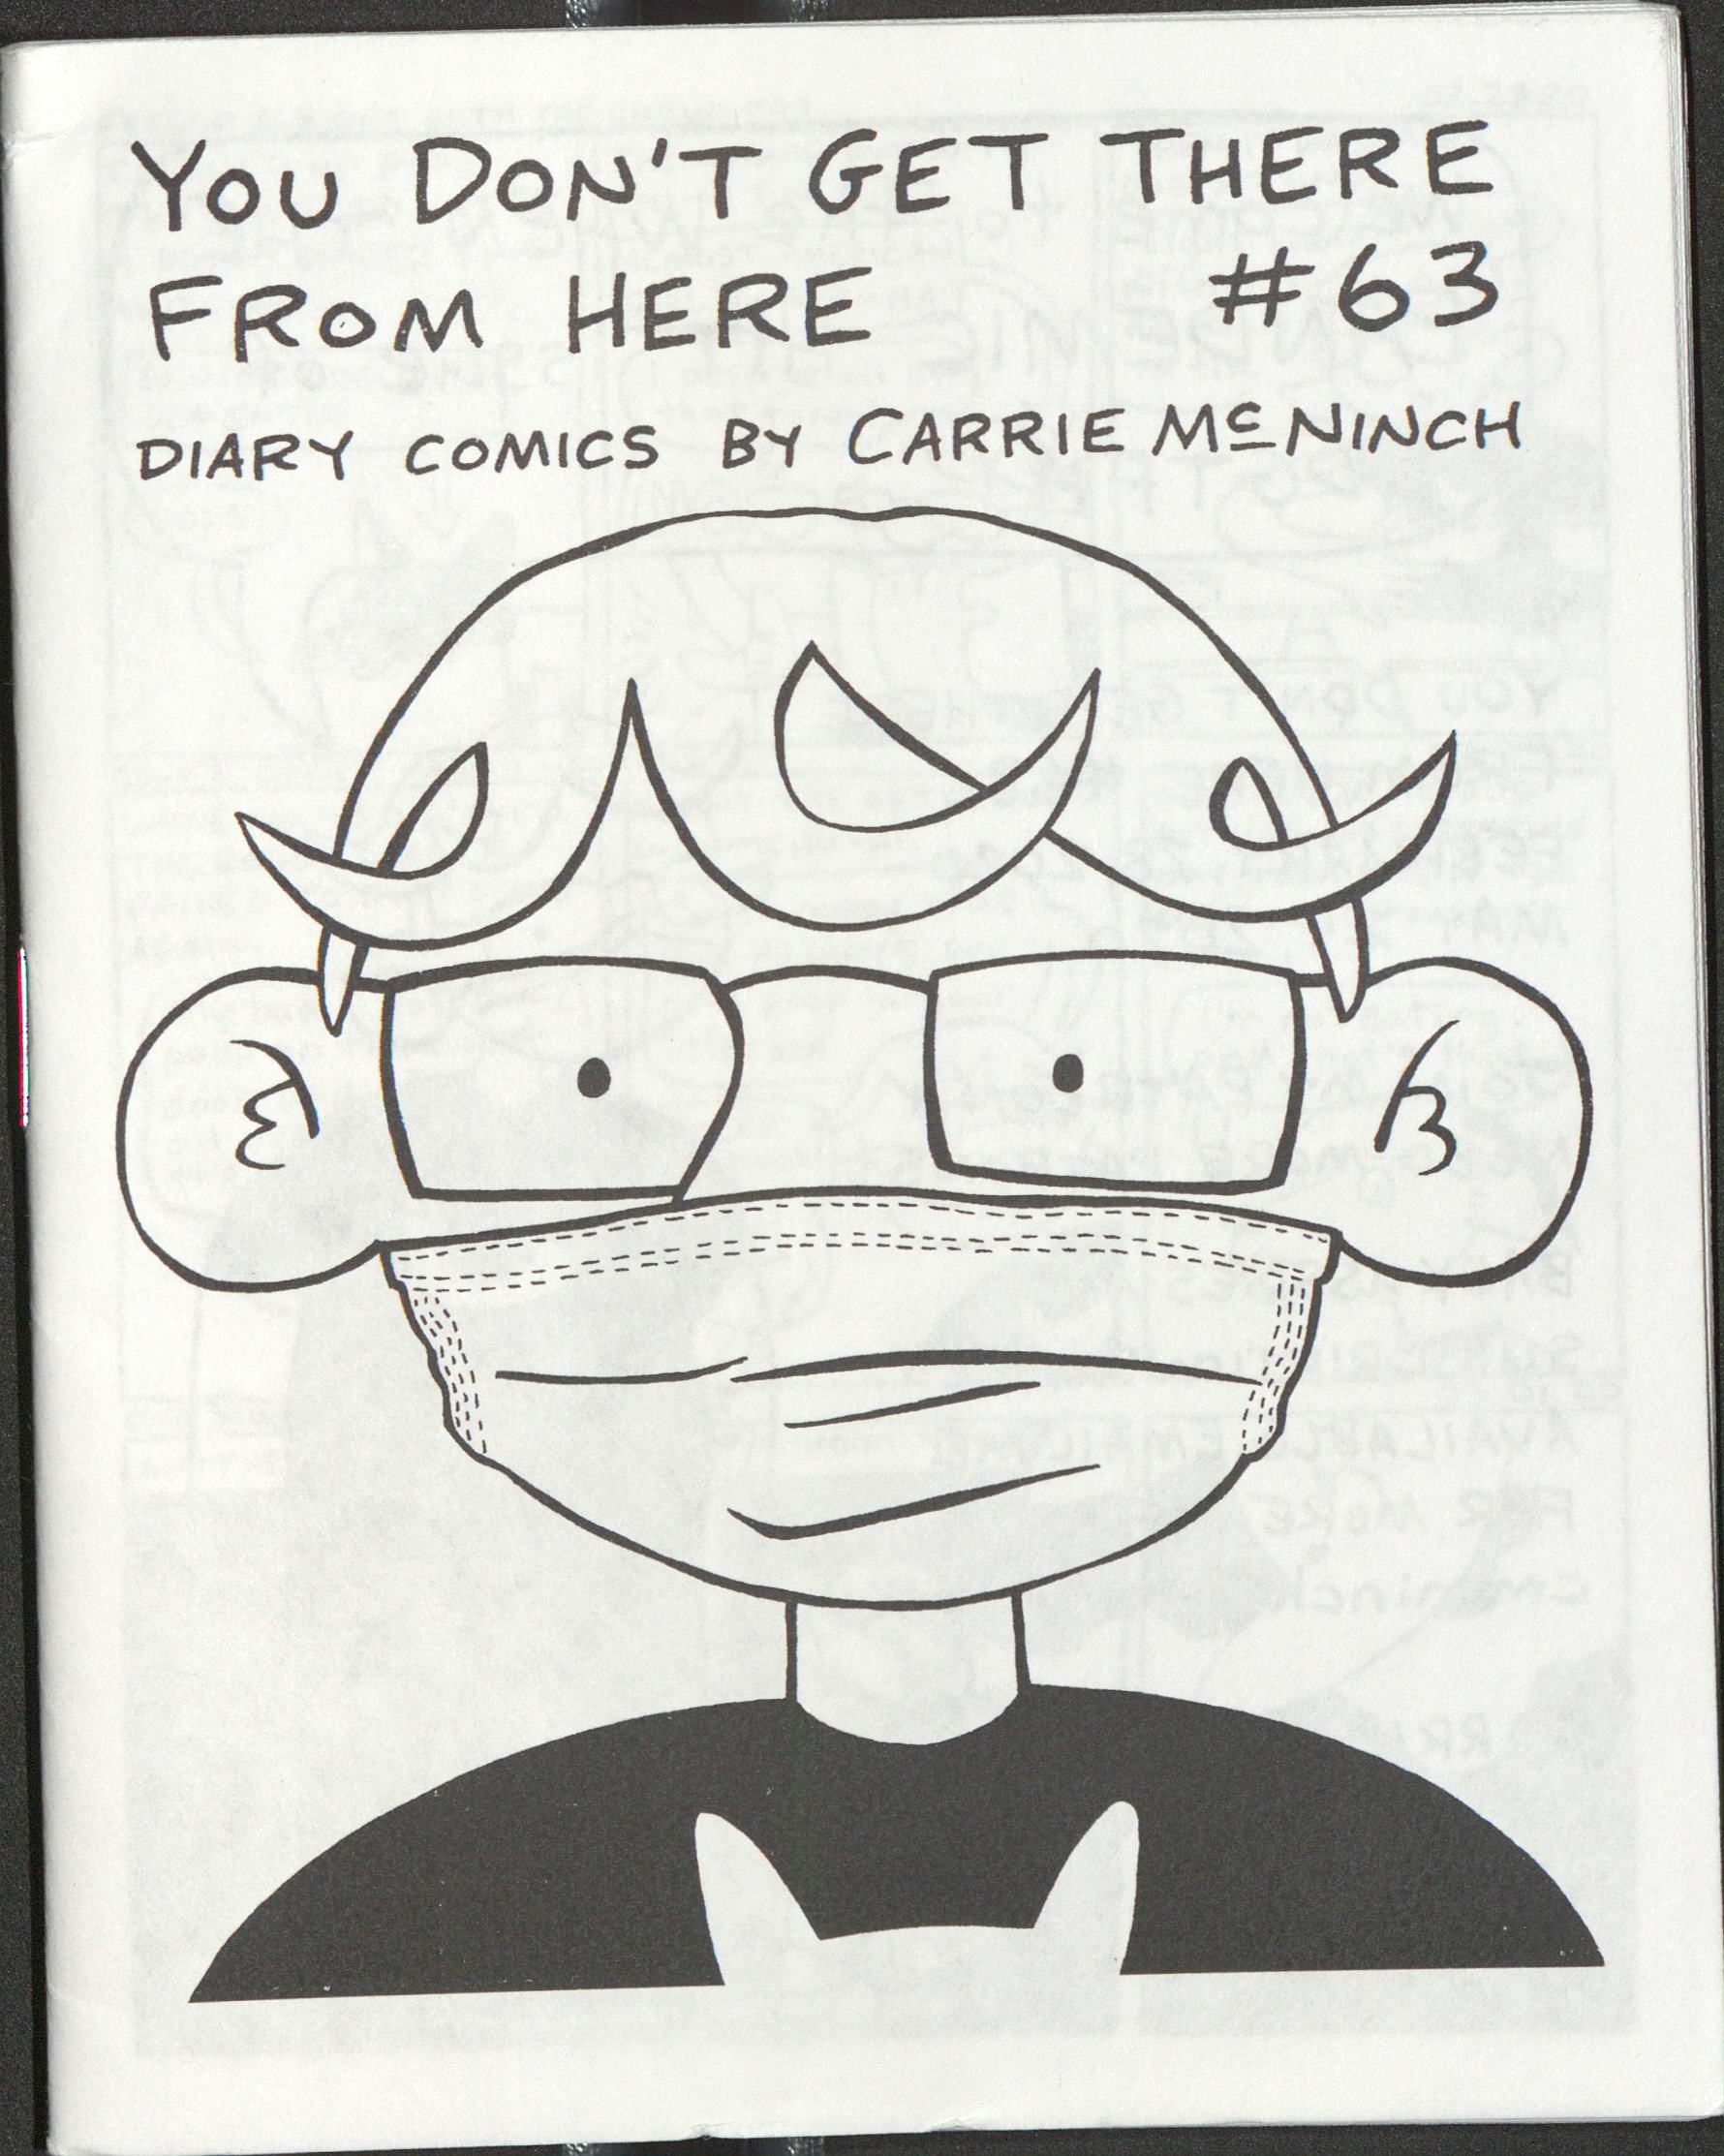 YOU DON'T GET THERE
FROM HERE #63
DIARY COMICS BY CARRIE McNINCH